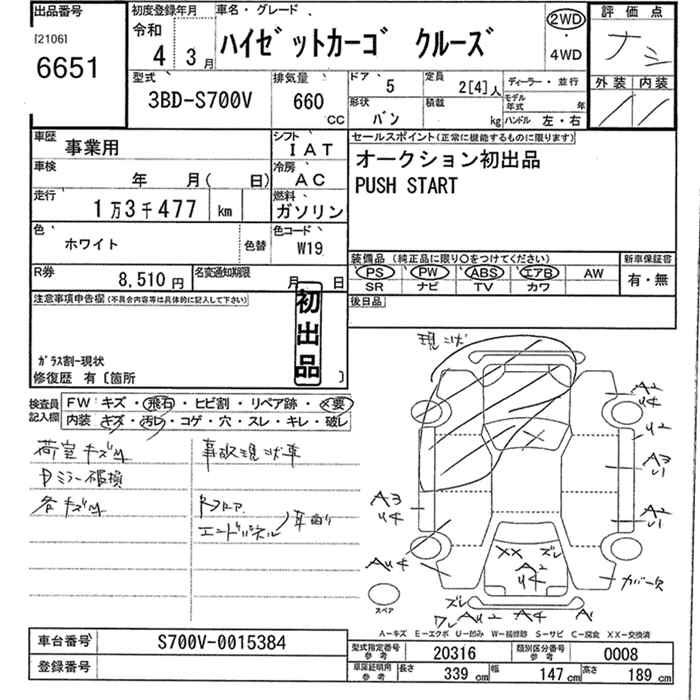 出品番号
[2106]
6651
初度登録年月
令和
4 3月
車名・グレード
ハイゼットカーゴ クルーズ
2WD
・
4WD
評価点
ナシ
外装 内装
/ / / /
型式
3BD-S700V
排気量
660
CC
ドア
5
定員
2[4]人
形状
バン
積載
kg
ディーラー・並行
モデル年式 年
ハンドル 左・右
車歴
事業用
シフト
IAT
車検
年 月( 日)
冷房
AC
走行
1万3千477 km
燃料
ガソリン
色
ホワイト
色替
色コード
W19
R券
8,510円
名変通知期限
月 日
セールスポイント(正常に機能するものに限ります)
オークション初出品
PUSH START
装備品 (純正品に限り○をつけてください)
PS PW ABS エアB AW
SR ナビ TV カワ
新車保証書
有・無
後日品
注意事項申告欄(不具合内容等は具体的に記入して下さい)
初出品
ガラス割-現状
修復歴 有〔箇所 〕
検査員記入欄
FW キズ・飛石・ヒビ割・リペア跡・X要
内装 キズ・汚レ・コゲ・穴・スレ・キレ・破レ
荷室キズ凹
Dミラー破損
各キズ凹
事故現状車
トランク
エンドパネル
現状
A2
U4
U2
A3
U1
A2
U1
A3
U4
AU4
XX ズレ
A2
U4
カバー欠
ズレ
ワレ AU2 A4 A1
スペア
A-キズ E-エクボ U-凹み W-補修跡 S-サビ C-腐食 XX-交換済
車台番号
S700V-0015384
登録番号
型式指定番号 参考
20316
類別区分番号 参考
0008
車庫証明用 参考
長さ 339cm
幅 147cm
高さ 189cm